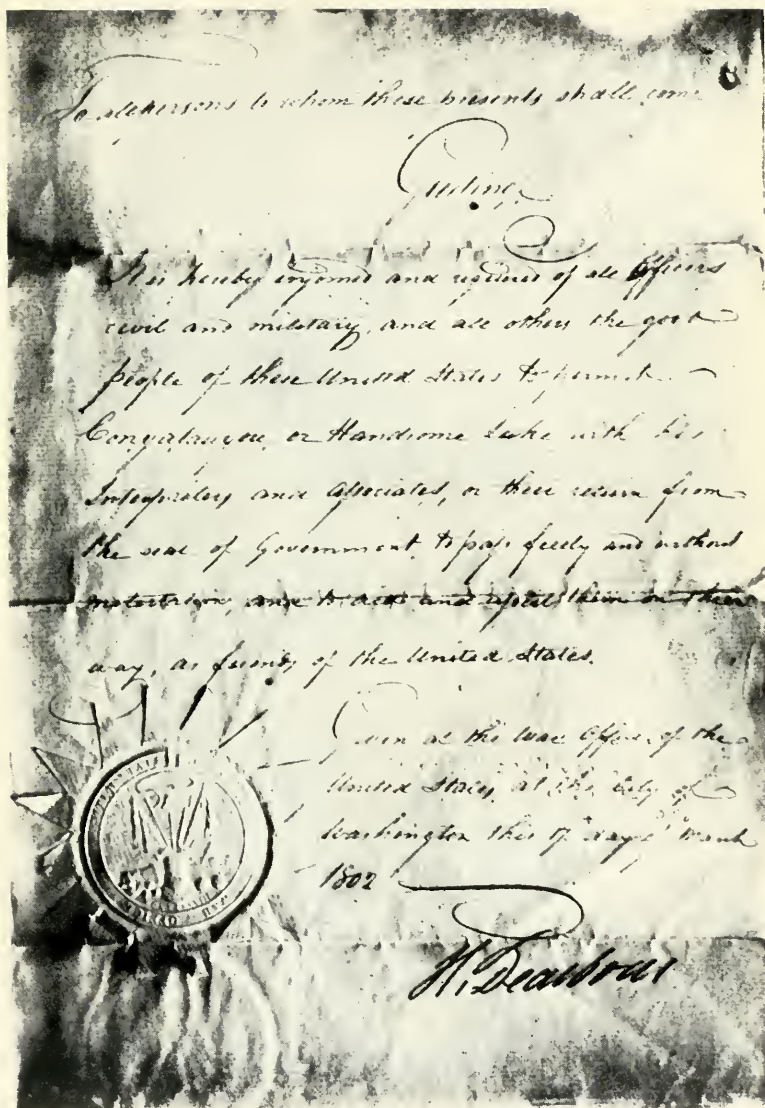 To all persons to whom these presents shall come
Greeting,
It is hereby enjoined and required of all Officers
civil and military, and all others the good
people of these United States to permit
Conyatauyou, or Handsome Lake with his
Interpreters and Associates, on their return from
the seat of Government, to pass freely and without
molestation, and to aid and assist them on their
way, as friends of the United States.
Given at the War Office of the
United States, at the City of
Washington this 17 day of March
1802
H. Dearborn